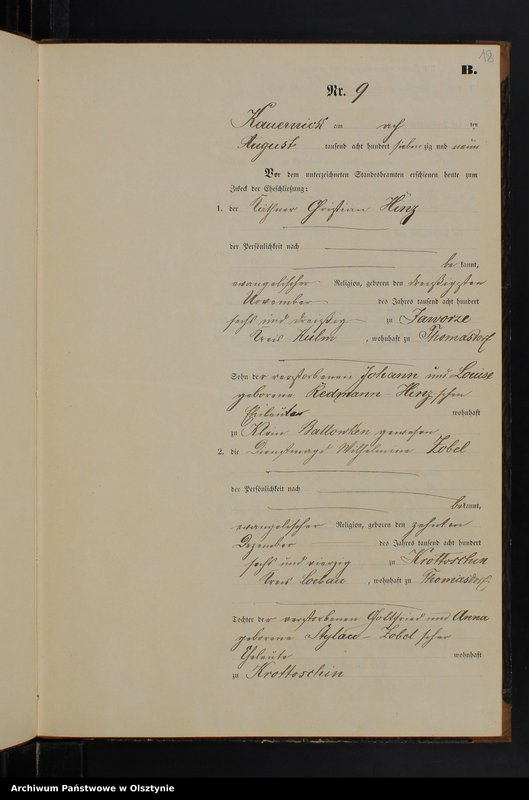 18
B.
Nr. 9
Kauernick am acht ten
August tausend acht hundert siebenzig und neun
Vor dem unterzeichneten Standesbeamten erschienen heute zum
Zweck der Eheschließung:
1. der Käthner Christian Hinz
der Persönlichkeit nach
be kannt,
evangelischer Religion, geboren den dreißigsten
November des Jahres tausend acht hundert
sechs und dreißig zu Jaworze
Kreis Kulm , wohnhaft zu Thomasdorf
Sohn der verstorbenen Johann und Louise
geborene Redmann - Hinz'schen
Eheleuten wohnhaft
zu Klein Ballowken gewesen
2. die Dienstmagd Wilhelmine Zobel
der Persönlichkeit nach
bekannt,
evangelischer Religion, geboren den zehnten
Dezember des Jahres tausend acht hundert
sechs und vierzig zu Krottoschin
Kreis Loebau , wohnhaft zu Thomasdorf
Tochter der verstorbenen Gottfried und Anna
geborene - Zobel'scher
Eheleute wohnhaft
zu Krottoschin
Archiwum Państwowe w Olsztynie